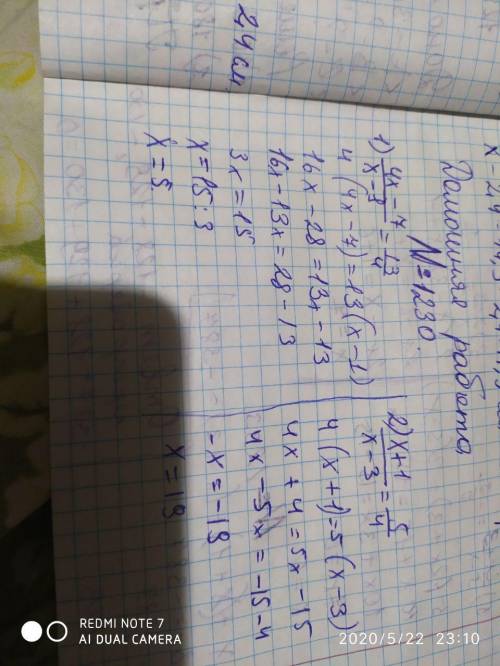 24 см
Домашняя работа
№ 1230.
1) 4x - 7 / x - 1 = 13 / 4
4 (4x - 7) = 13 (x - 1)
16x - 28 = 13x - 13
16x - 13x = 28 - 13
3x = 15
x = 15 : 3
x = 5
2) x + 1 / x - 3 = 5 / 4
4 (x + 1) = 5 (x - 3)
4x + 4 = 5x - 15
4x - 5x = -15 - 4
-x = -19
x = 19
REDMI NOTE 7
AI DUAL CAMERA
2020/5/22 23:10